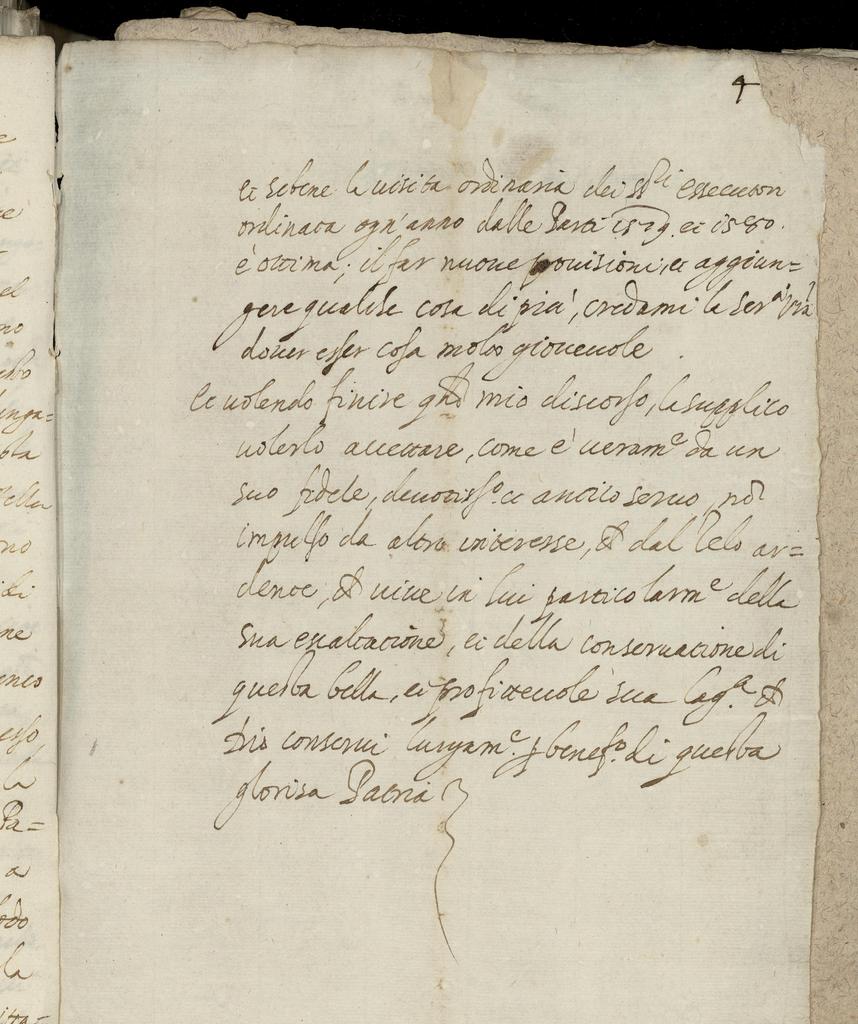 4
et sebene la uisita ordinaria dei ss.ri essecutori
ordinata ogn'anno dalle Parti 1579. et 1580.
è ottima; il far nuoue prouisioni, et aggiun=
gere qualche cosa di più, credami la Ser.a V.ra
douer esser cosa molto gioueuole.
Et uolendo finire q.to mio discorso, la supplico
uolerlo accettare, come è ueram.te da un
suo fidele, deuotiss.o et antico seruo, nõ
impulso da altro interesse, ch dal zelo ar=
dente, ch uiue in lui particolarm.te della
sua exaltatione, et della conseruatione di
questa bella, et profitteuole sua lag.a ch
Dio conserui lungam.te p benef.o di questa
gloriosa Patria